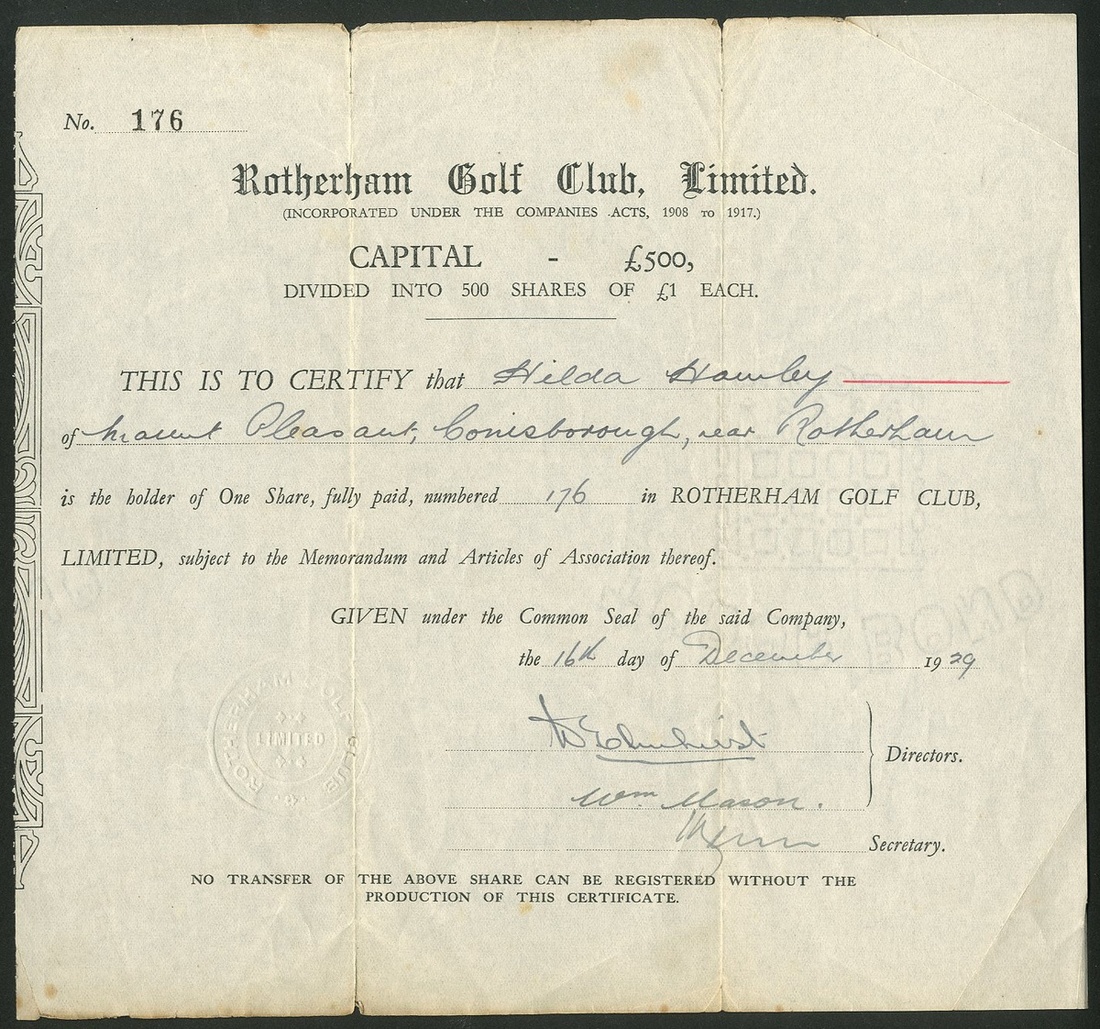 No. 176
Rotherham Golf Club, Limited.
(INCORPORATED UNDER THE COMPANIES ACTS, 1908 TO 1917.)
CAPITAL - £500,
DIVIDED INTO 500 SHARES OF £1 EACH.
THIS IS TO CERTIFY that Hilda Hawley
of Mount Pleasant, Conisborough, near Rotherham
is the holder of One Share, fully paid, numbered 176 in ROTHERHAM GOLF CLUB,
LIMITED, subject to the Memorandum and Articles of Association thereof.
GIVEN under the Common Seal of the said Company,
the 16th day of December 1929
ROTHERHAM GOLF CLUB
LIMITED
Directors.
Wm Mason.
Secretary.
NO TRANSFER OF THE ABOVE SHARE CAN BE REGISTERED WITHOUT THE
PRODUCTION OF THIS CERTIFICATE.